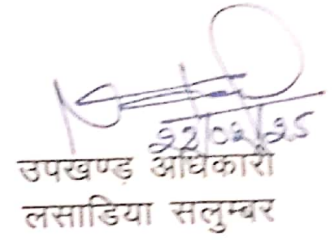 22/02/25
उपखण्ड अधिकारी
लसाडिया सलुम्बर